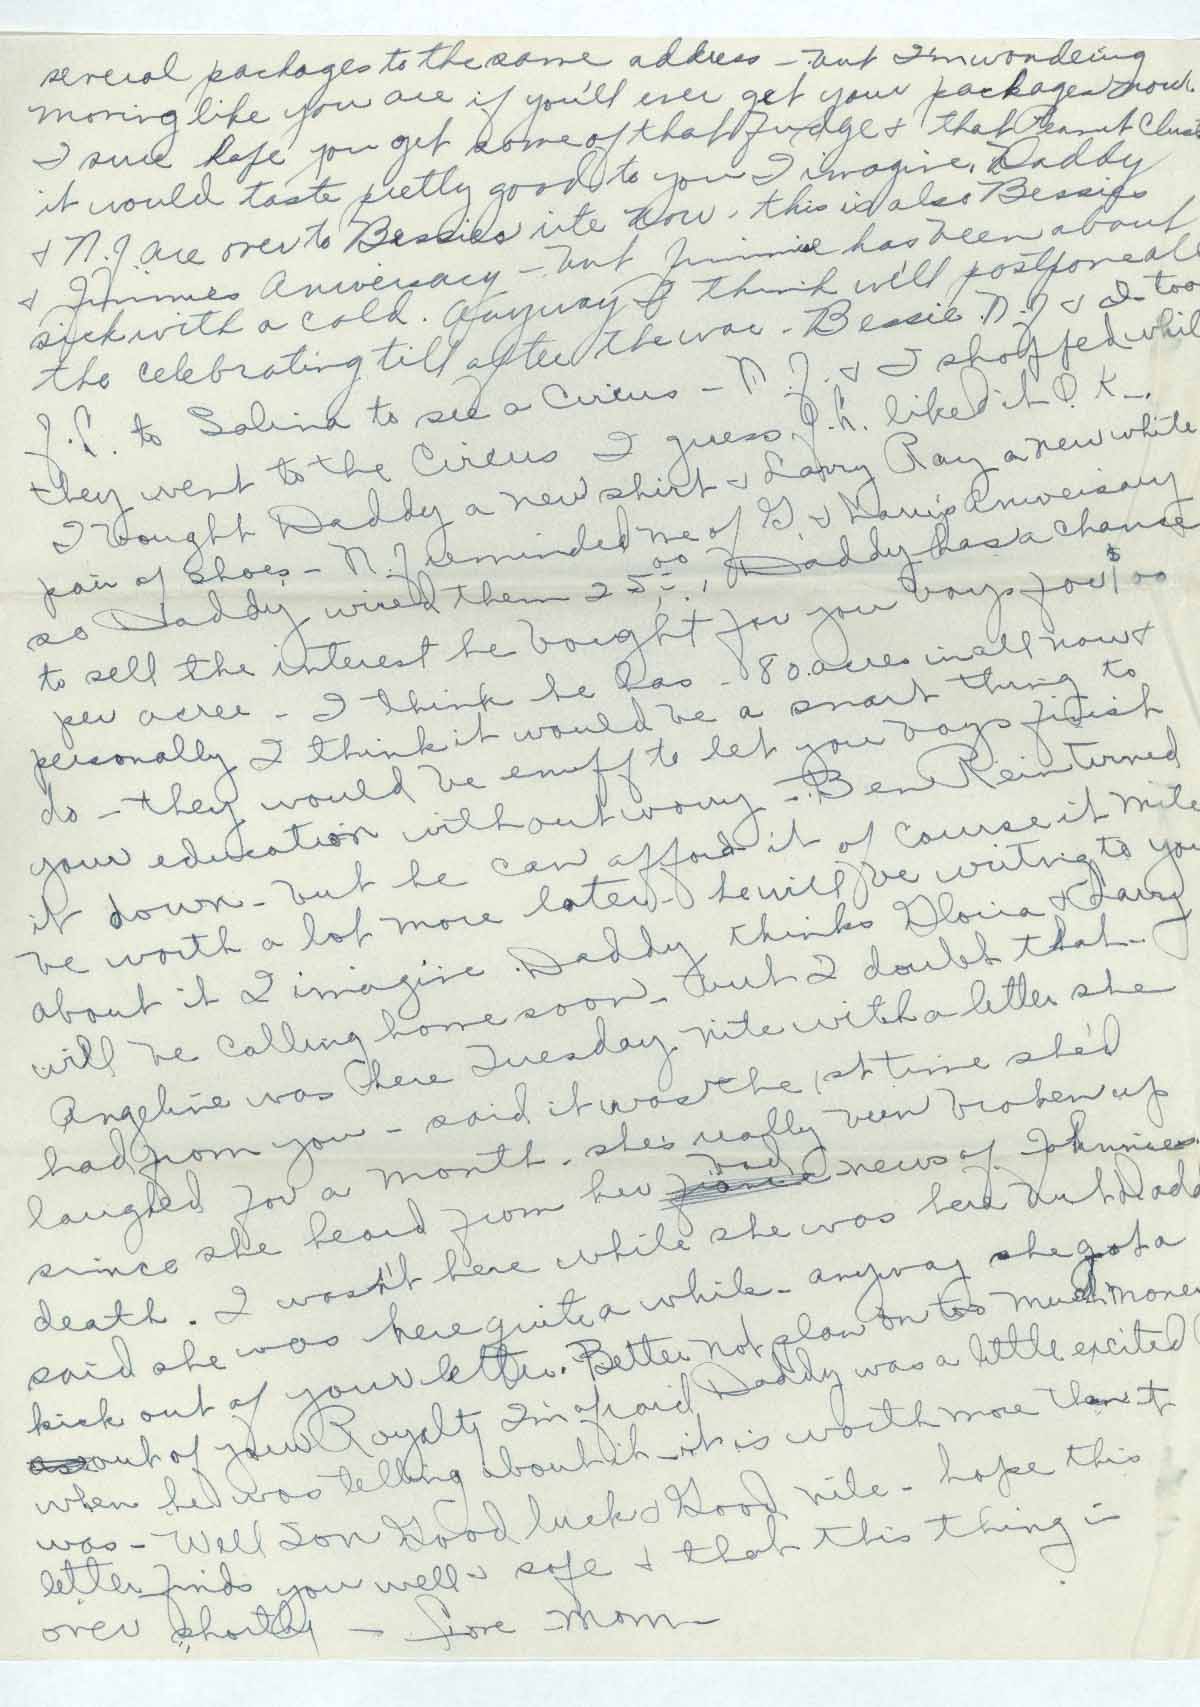 several packages to the same address - but I'm wondeing
moving like you are if you'll ever get your packages now.
I sure hope you get some of that fudge & that Peanut Clust
it would taste pretty good to you I imagine. Daddy
& N.J are over to Bessies rite now. this is also Bessies
& Jimmies Aniversacy - but Jimmie has been about
sick with a cold. Anyway I think we'll postpone all
the celebrating till after the war - Bessie N.J & I too
J.C. to Salina to see a Circus - N.J. & I shopped whil
they went to the Circus I guess J.C. liked it O.K -.
I bought Daddy a new shirt & Larry Ray a new white
pair of shoes - N.J reminded me of G & Larrys Aniversary
so Daddy wired them 25.00, Daddy has a chance
to sell the interest he bought for you boys for $100
per acree - I think he has - 80 acres in all now &
personally I think it would be a smart thing to
do - they would be enuff to let you boys finish
your education without worry - Ben Rein turned
it down - but he can afford it of course it mite
be worth a lot more later - he will be writing to you
about it I imagine. Daddy thinks Gloria & Larry
will be calling home soon - but I doubt that -
Angeline was here Tuesday nite with a letter she
had from you - said it was the 1st time she'd
laughed for a month. she's really been broken up
since she heard from her bad news of Johnnies
death. I wasn't here while she was here but Dadd
said she was here quite a while - anyway she got a
kick out of your letter. Better not plan on too much money
out of your Royalty I'm afraid Daddy was a little excited
when he was telling about it - it is worth more than it
was - Well Son Good luck & Good nite - hope this
letter finds you well & safe & that this thing is
over shortly - Love Mom -